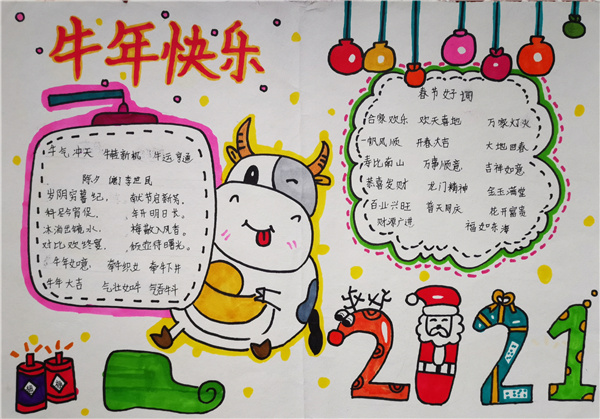 牛年快乐
牛气冲天 犇犇新机 牛运亨通
除夕 唐 李世民
岁阴穷暮纪, 献节启新芳。
冬尽今宵促, 年开明日长。
冰消出镜水, 梅散入风香。
对此欢终宴, 倾壶待曙光。
牛年如意 牵牛织女 牵牛下井
牛年大吉 气壮如牛 气吞牛斗
春节好词
合家欢乐 欢天喜地 万家灯火
一帆风顺 开春大吉 大地回春
寿比南山 万事顺意 吉祥如意
恭喜发财 龙门精神 金玉满堂
百业兴旺 普天同庆 花开富贵
财源广进 福如东海
2021